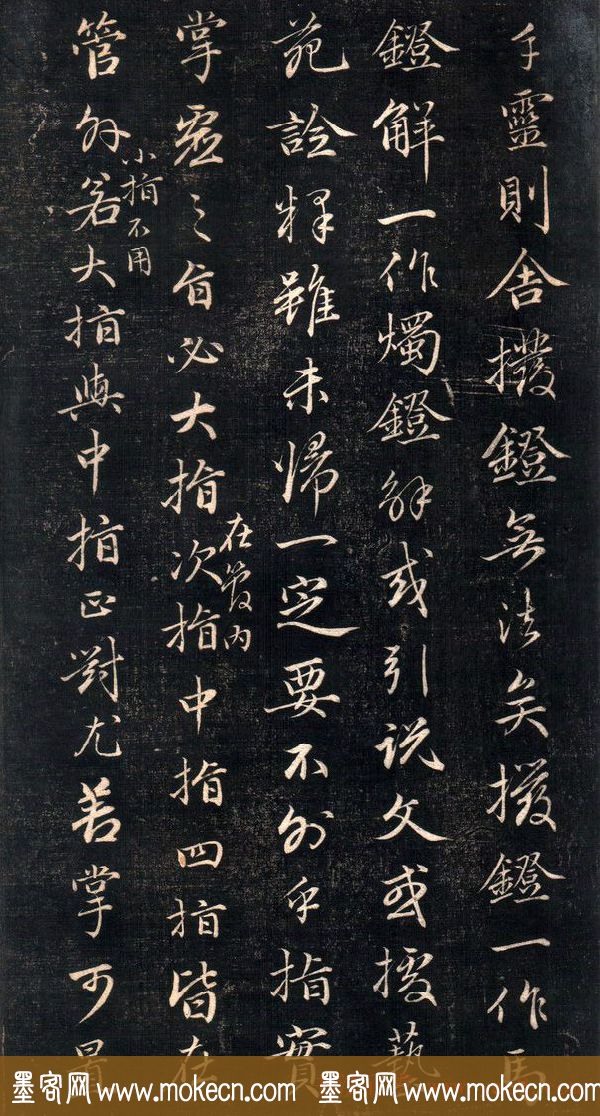 手靈則舍撥鐙無法矣撥鐙一作馬
鐙解一作燭鐙解或引说文或援藝
苑詮釋雖未歸一定要不外乎指實
掌虛之旨必大指次指中指四指皆在
在管内
管外若大指與中指正對尤善掌可
小指不用
墨客网 www.mokecn.com 墨客网 www.mokecn.com